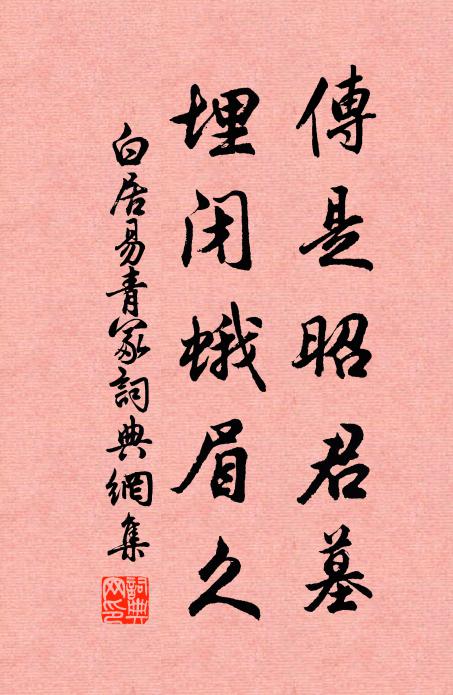 傳是昭君墓
埋闭蛾眉久
白居易青冢詞典網集
詞典网印